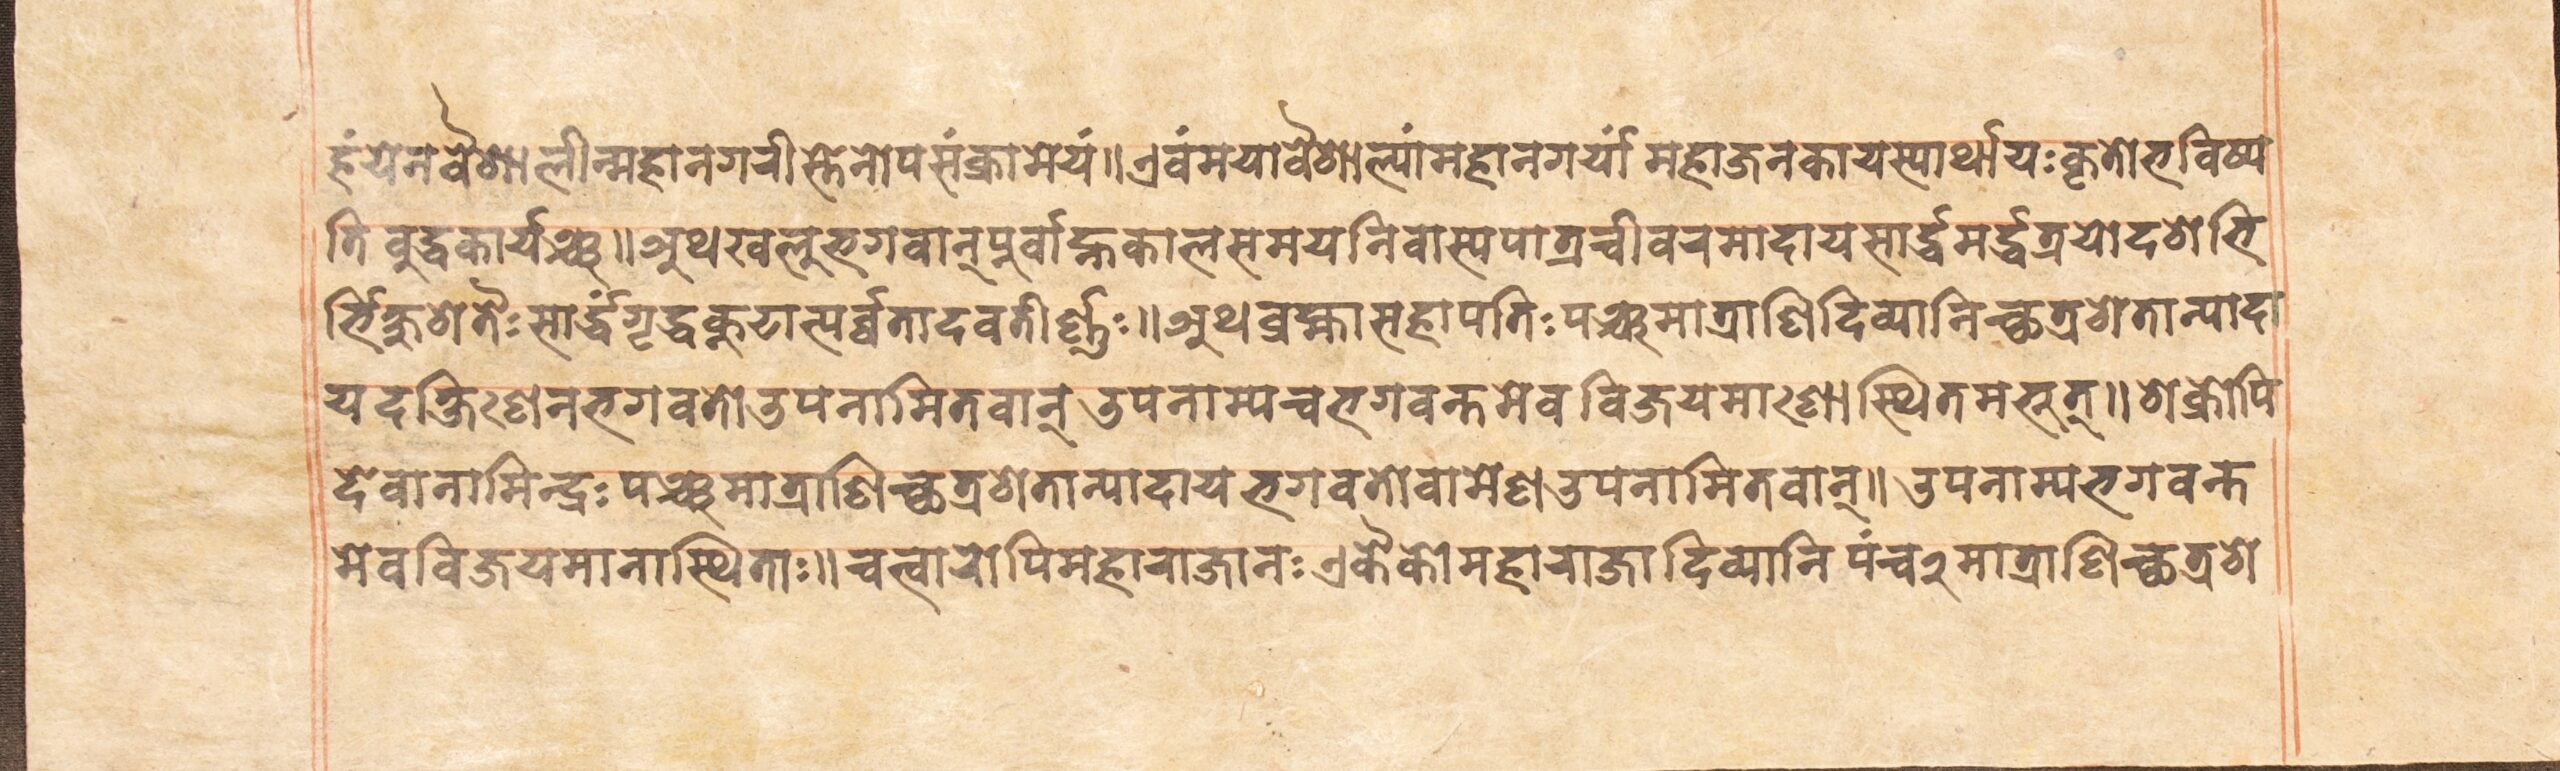 हंयेनवैशालीन्महानगरीस्तेनोपसंक्रामेयं॥एवंमयावैशाल्यांमहानगर्यां महाजनकायस्यार्थायःकृतोभविष्य
ति बुद्धकार्यञ्च॥अथखलुभगवान्पूर्वाह्नकालसमयनिवास्यपात्रचीवरमादायसार्द्धमर्द्धत्रयोदशभि
र्भिक्षुशतैःसार्द्धंगृद्धकूटात्पर्व्वतादवतीर्ण्णः॥अथब्रह्मासहापतिःपञ्चमात्राणिदिव्यानिच्छत्रशतान्यादा
यदक्षिणेनभगवतोउपनामितवान् उपनाम्यचभगवन्तमेव विजयमाणास्थितमभूत्॥शक्रोपि
देवानामिन्द्रःपञ्चमात्राणिच्छत्रशतान्यादायभगवतोवामेणउपनामितवान्॥ उपनाम्यभगवन्त
मेवविजयमानास्थिताः॥चत्वारोपिमहाराजानःएकैकोमहाराजा दिव्यानि पंच२मात्राणिच्छत्रश